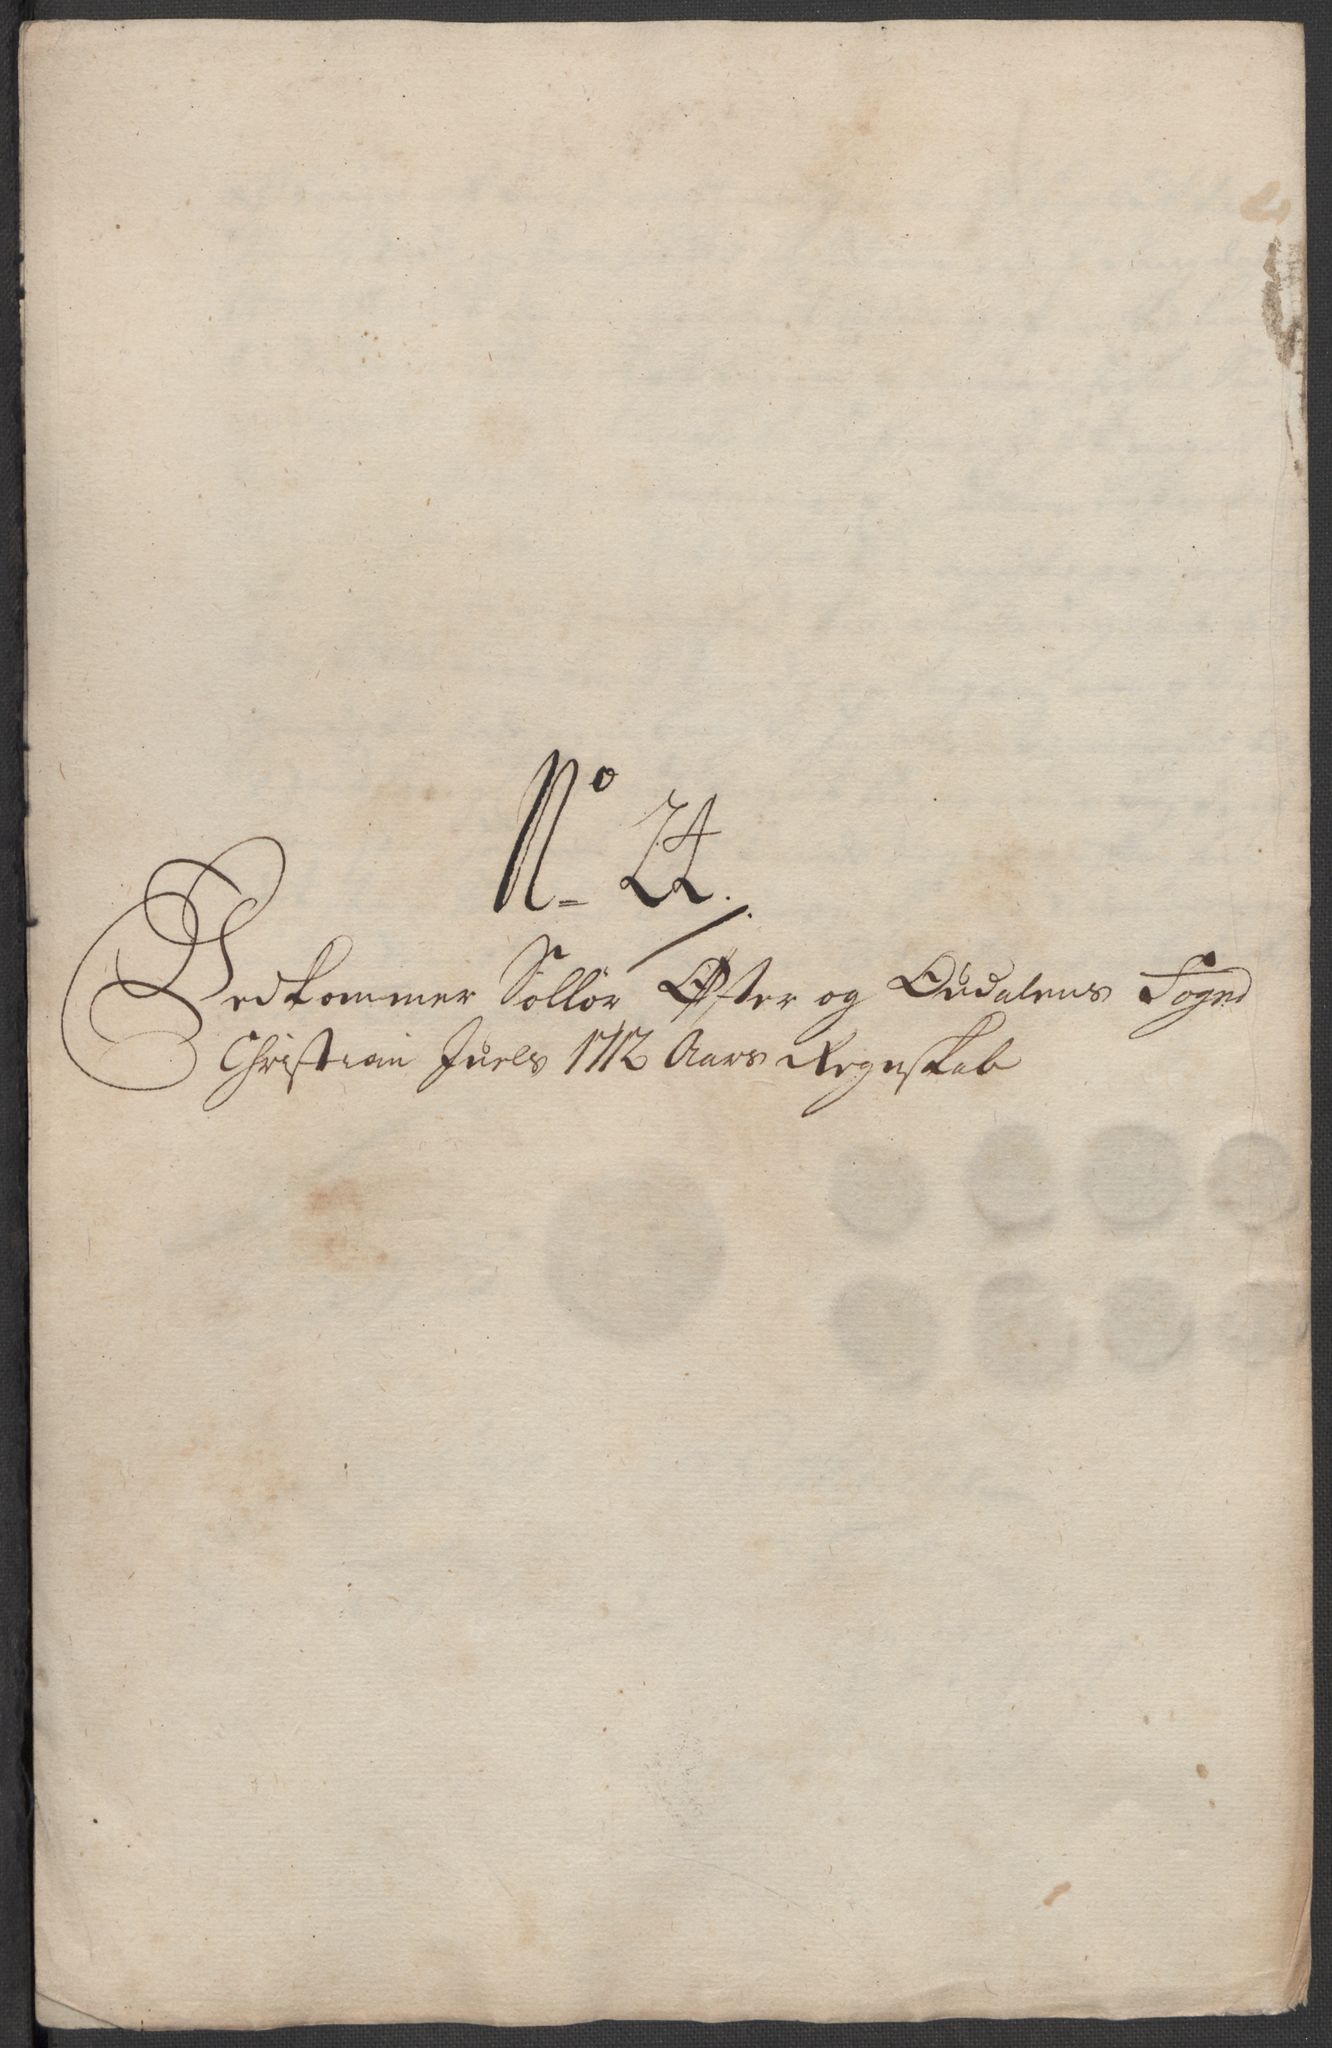 No 24.
Vedkommer Sollør Øster og Oudalens Foged
Christian Juels 1712 Aars Regnskab